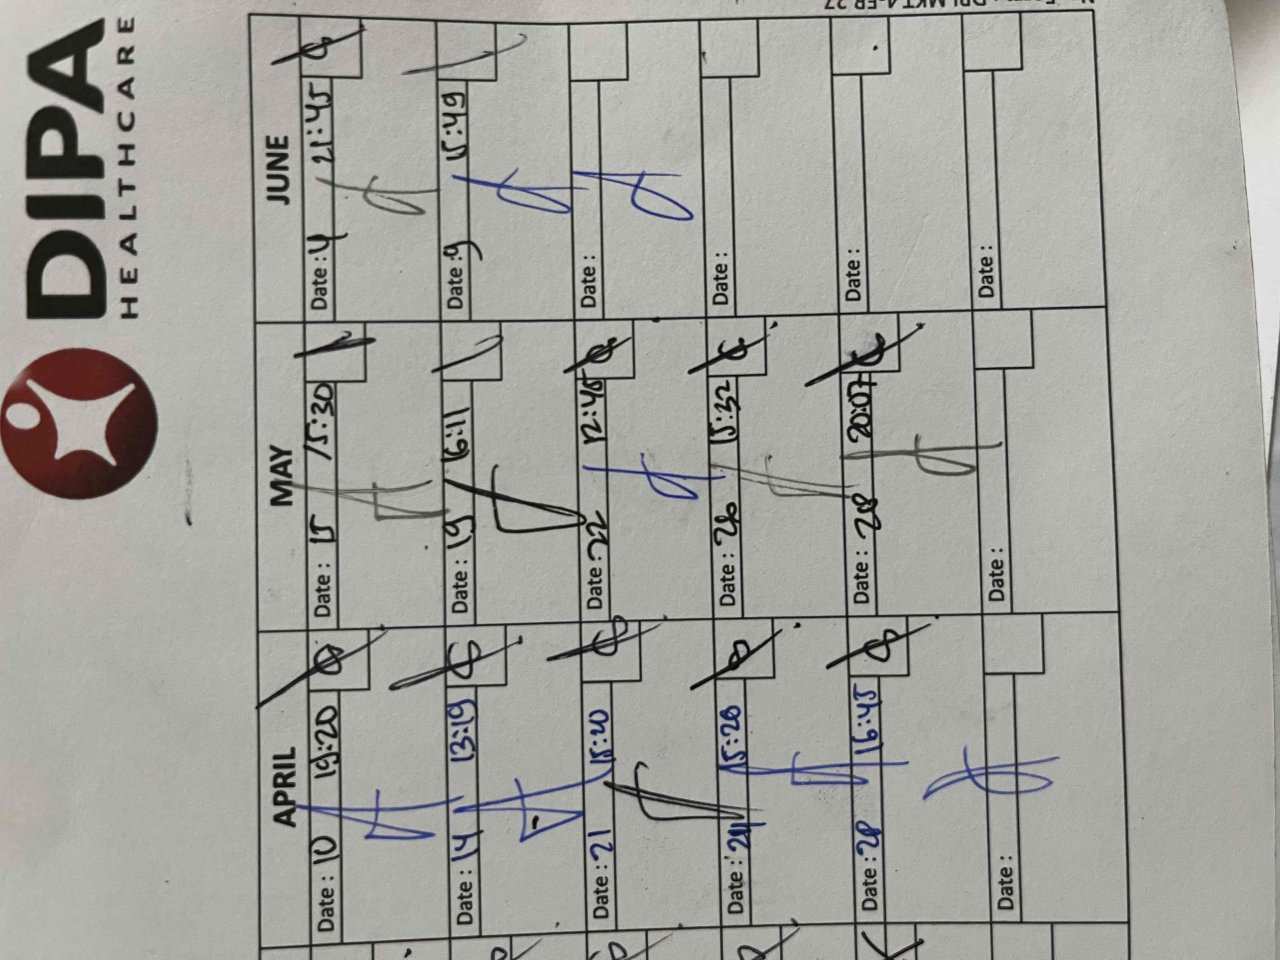 DIPA
HEALTHCARE
APRIL
Date : 10 19:20
Date : 14 13:19
Date : 21 15:20
Date : 24 15:28
Date : 28 16:45
Date :
MAY
Date : 15 15:30
Date : 19 16:11
Date : 22 12:45
Date : 26 15:32
Date : 28 20:07
Date :
JUNE
Date : 4 21:45
Date : 9 15:49
Date :
Date :
Date :
Date :